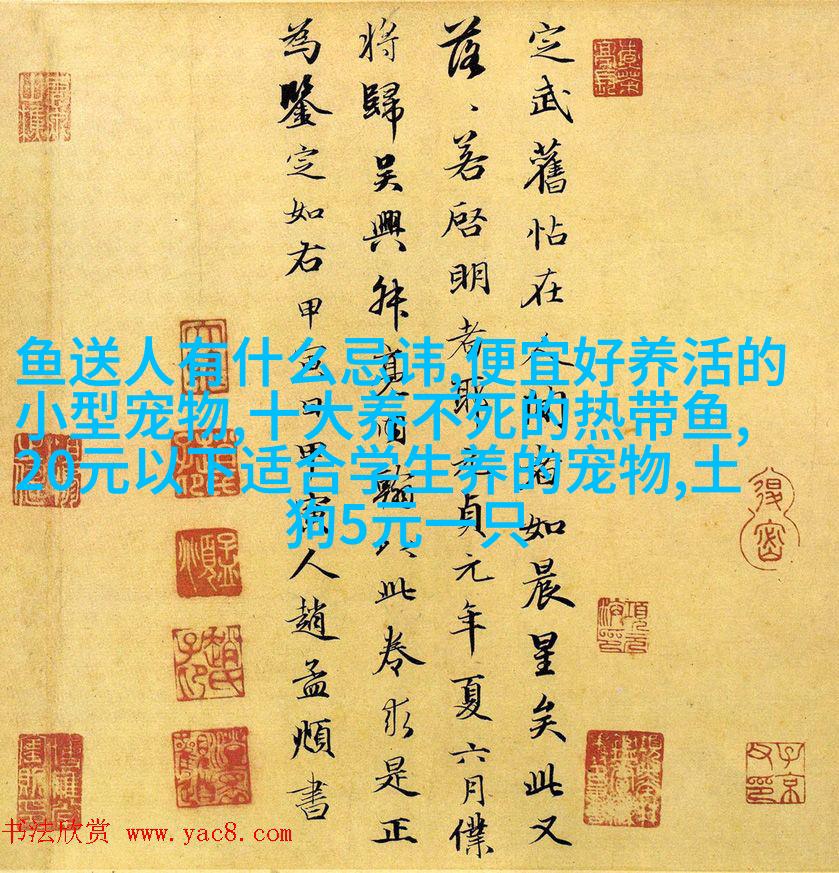 定武舊帖在人間者如晨星矣此又
落、若啓明者耶元貞元年夏六月僕
将歸吴興叔亮内翰以此卷求是正
為鑒定如右甲寅日甲寅人趙孟頫書
鱼送人有什么忌讳,便宜好养活的
小型宠物,十大养不死的热带鱼,
20元以下适合学生养的宠物,土
狗5元一只
书法欣赏 www.yac8.com